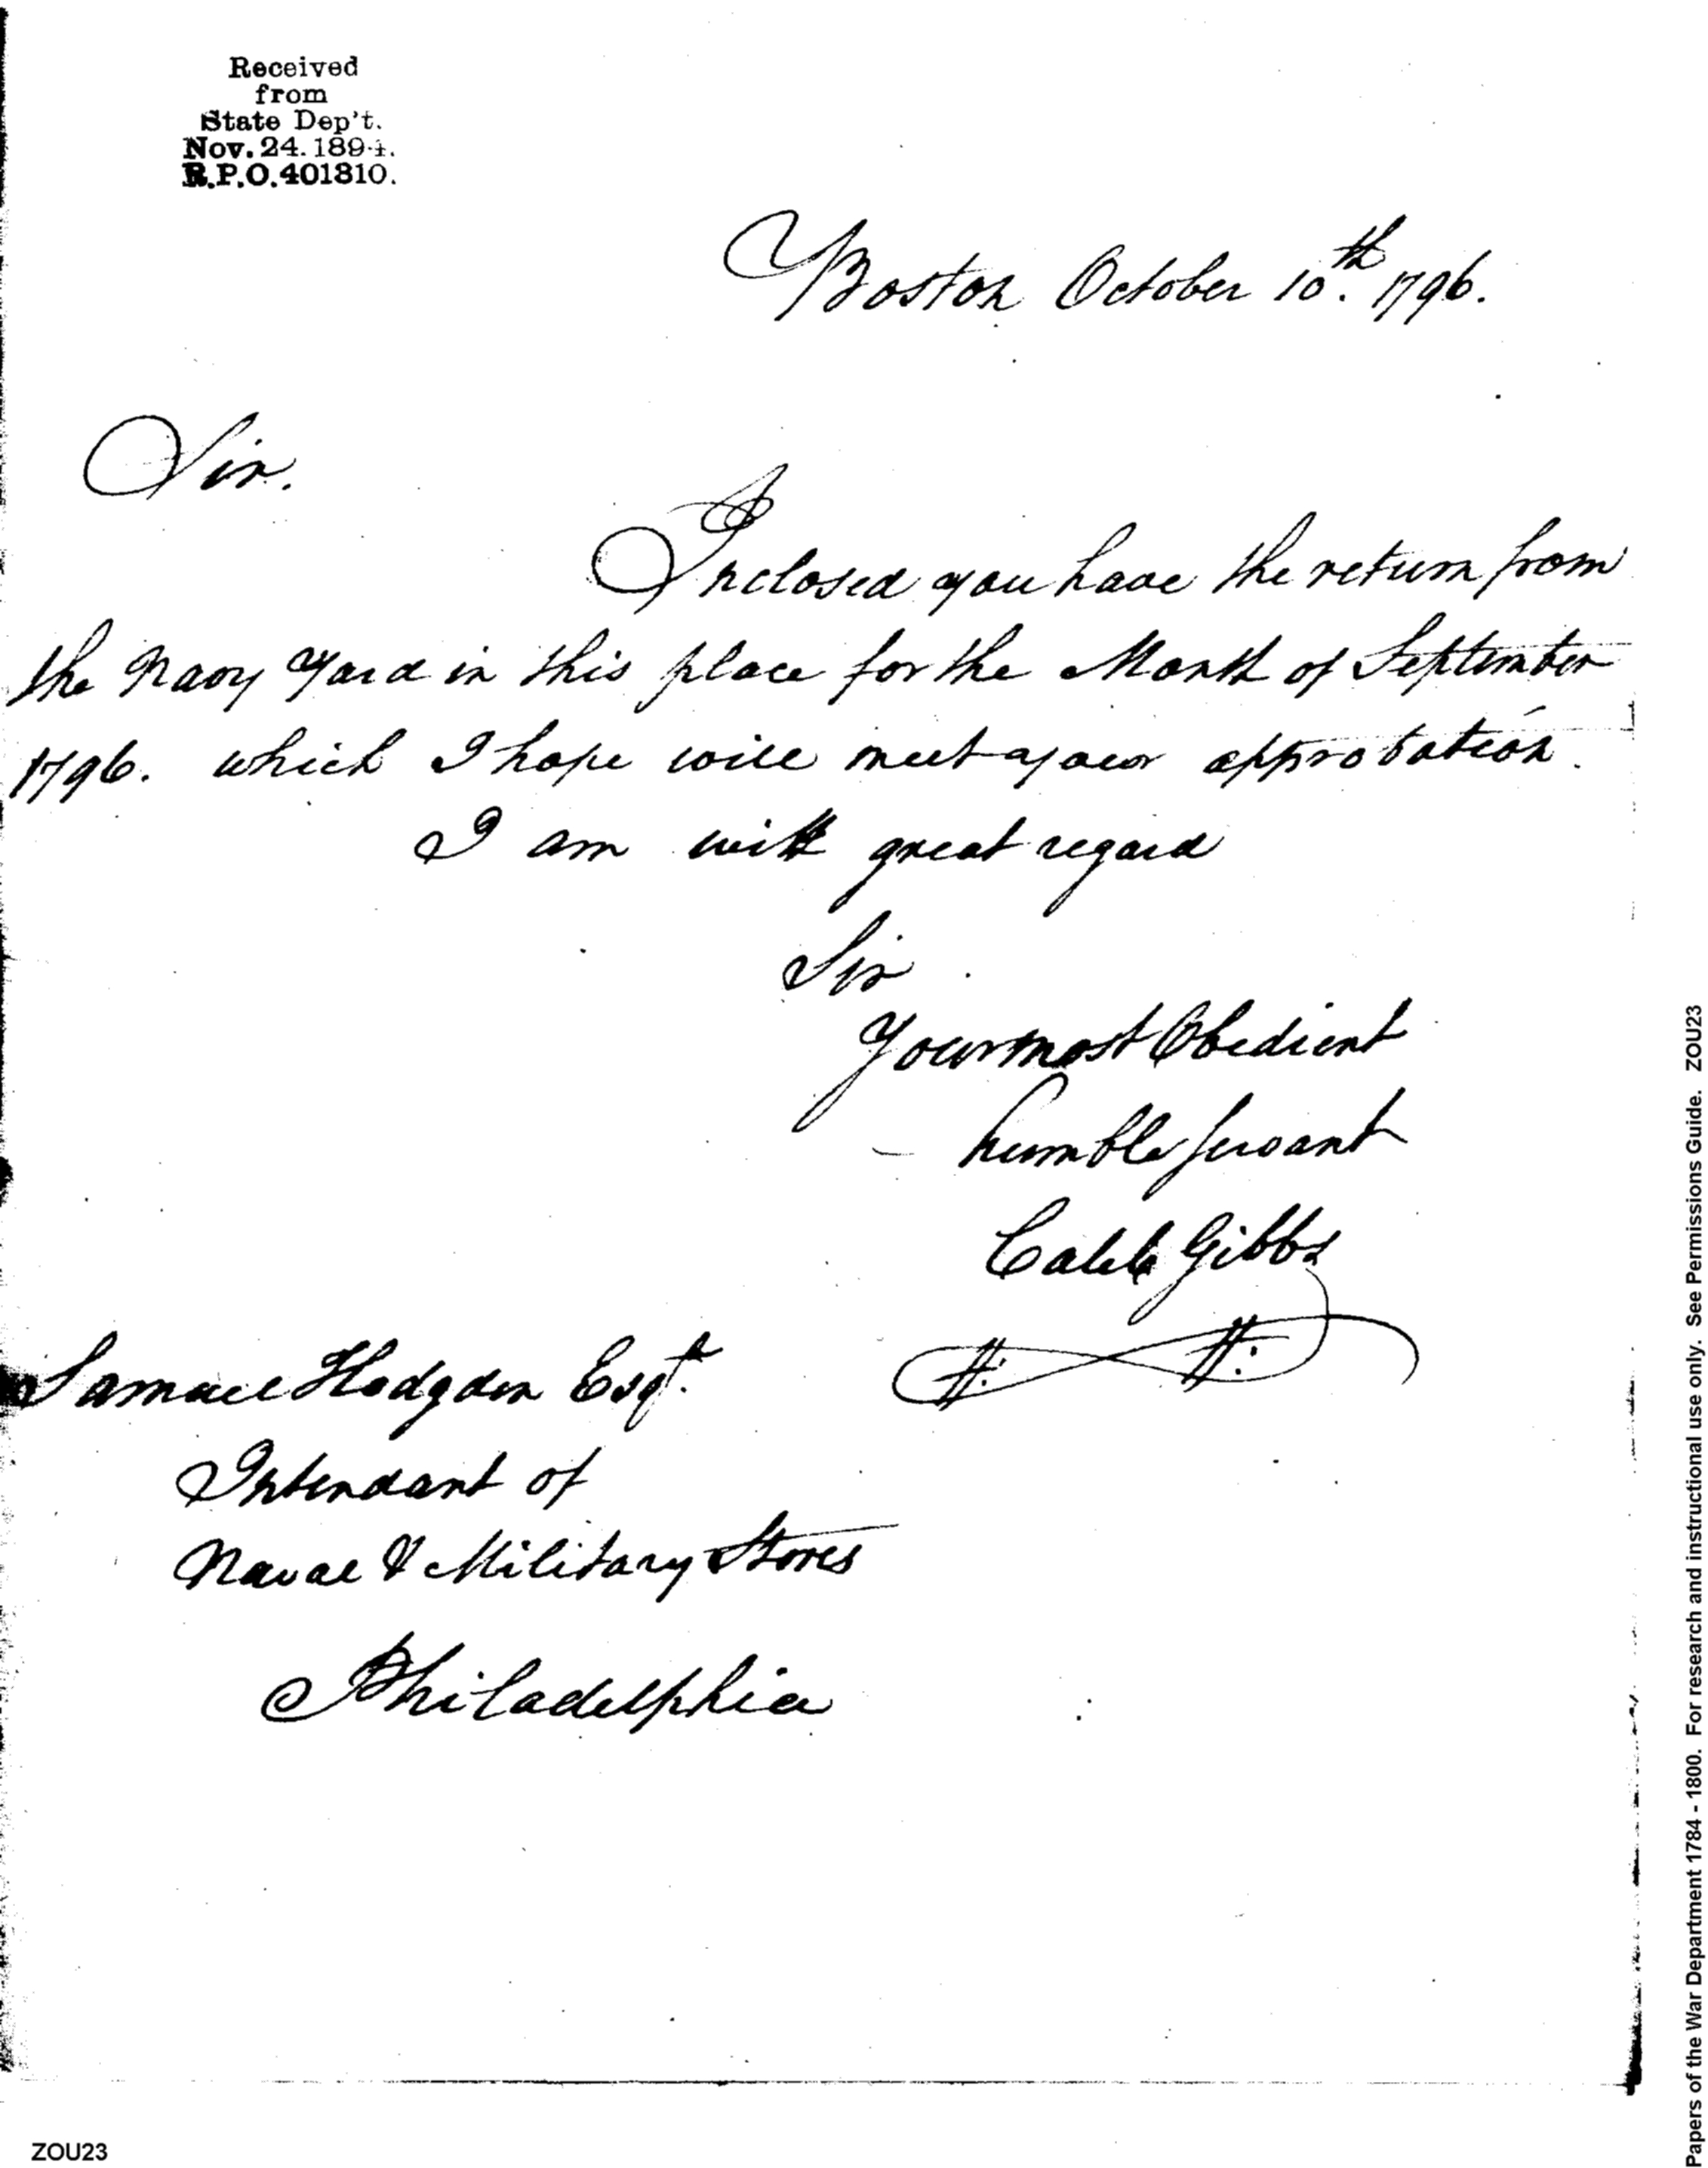 Received
from
State Dep't.
Nov. 24. 1894.
R.P.O. 401810.
Boston October 10th. 1796.
Sir.
Inclosed you have the return from
the Navy Yard in this place for the Month of September
1796. which I hope will meet your approbation.
I am with great regard
Sir
Your most Obedient
humble servant
Caleb Gibbs
Samuel Hodgdon Esqr.
Intendant of
Naval & Military Stores
Philadelphia
ZOU23
Papers of the War Department 1784 - 1800. For research and instructional use only. See Permissions Guide. ZOU23